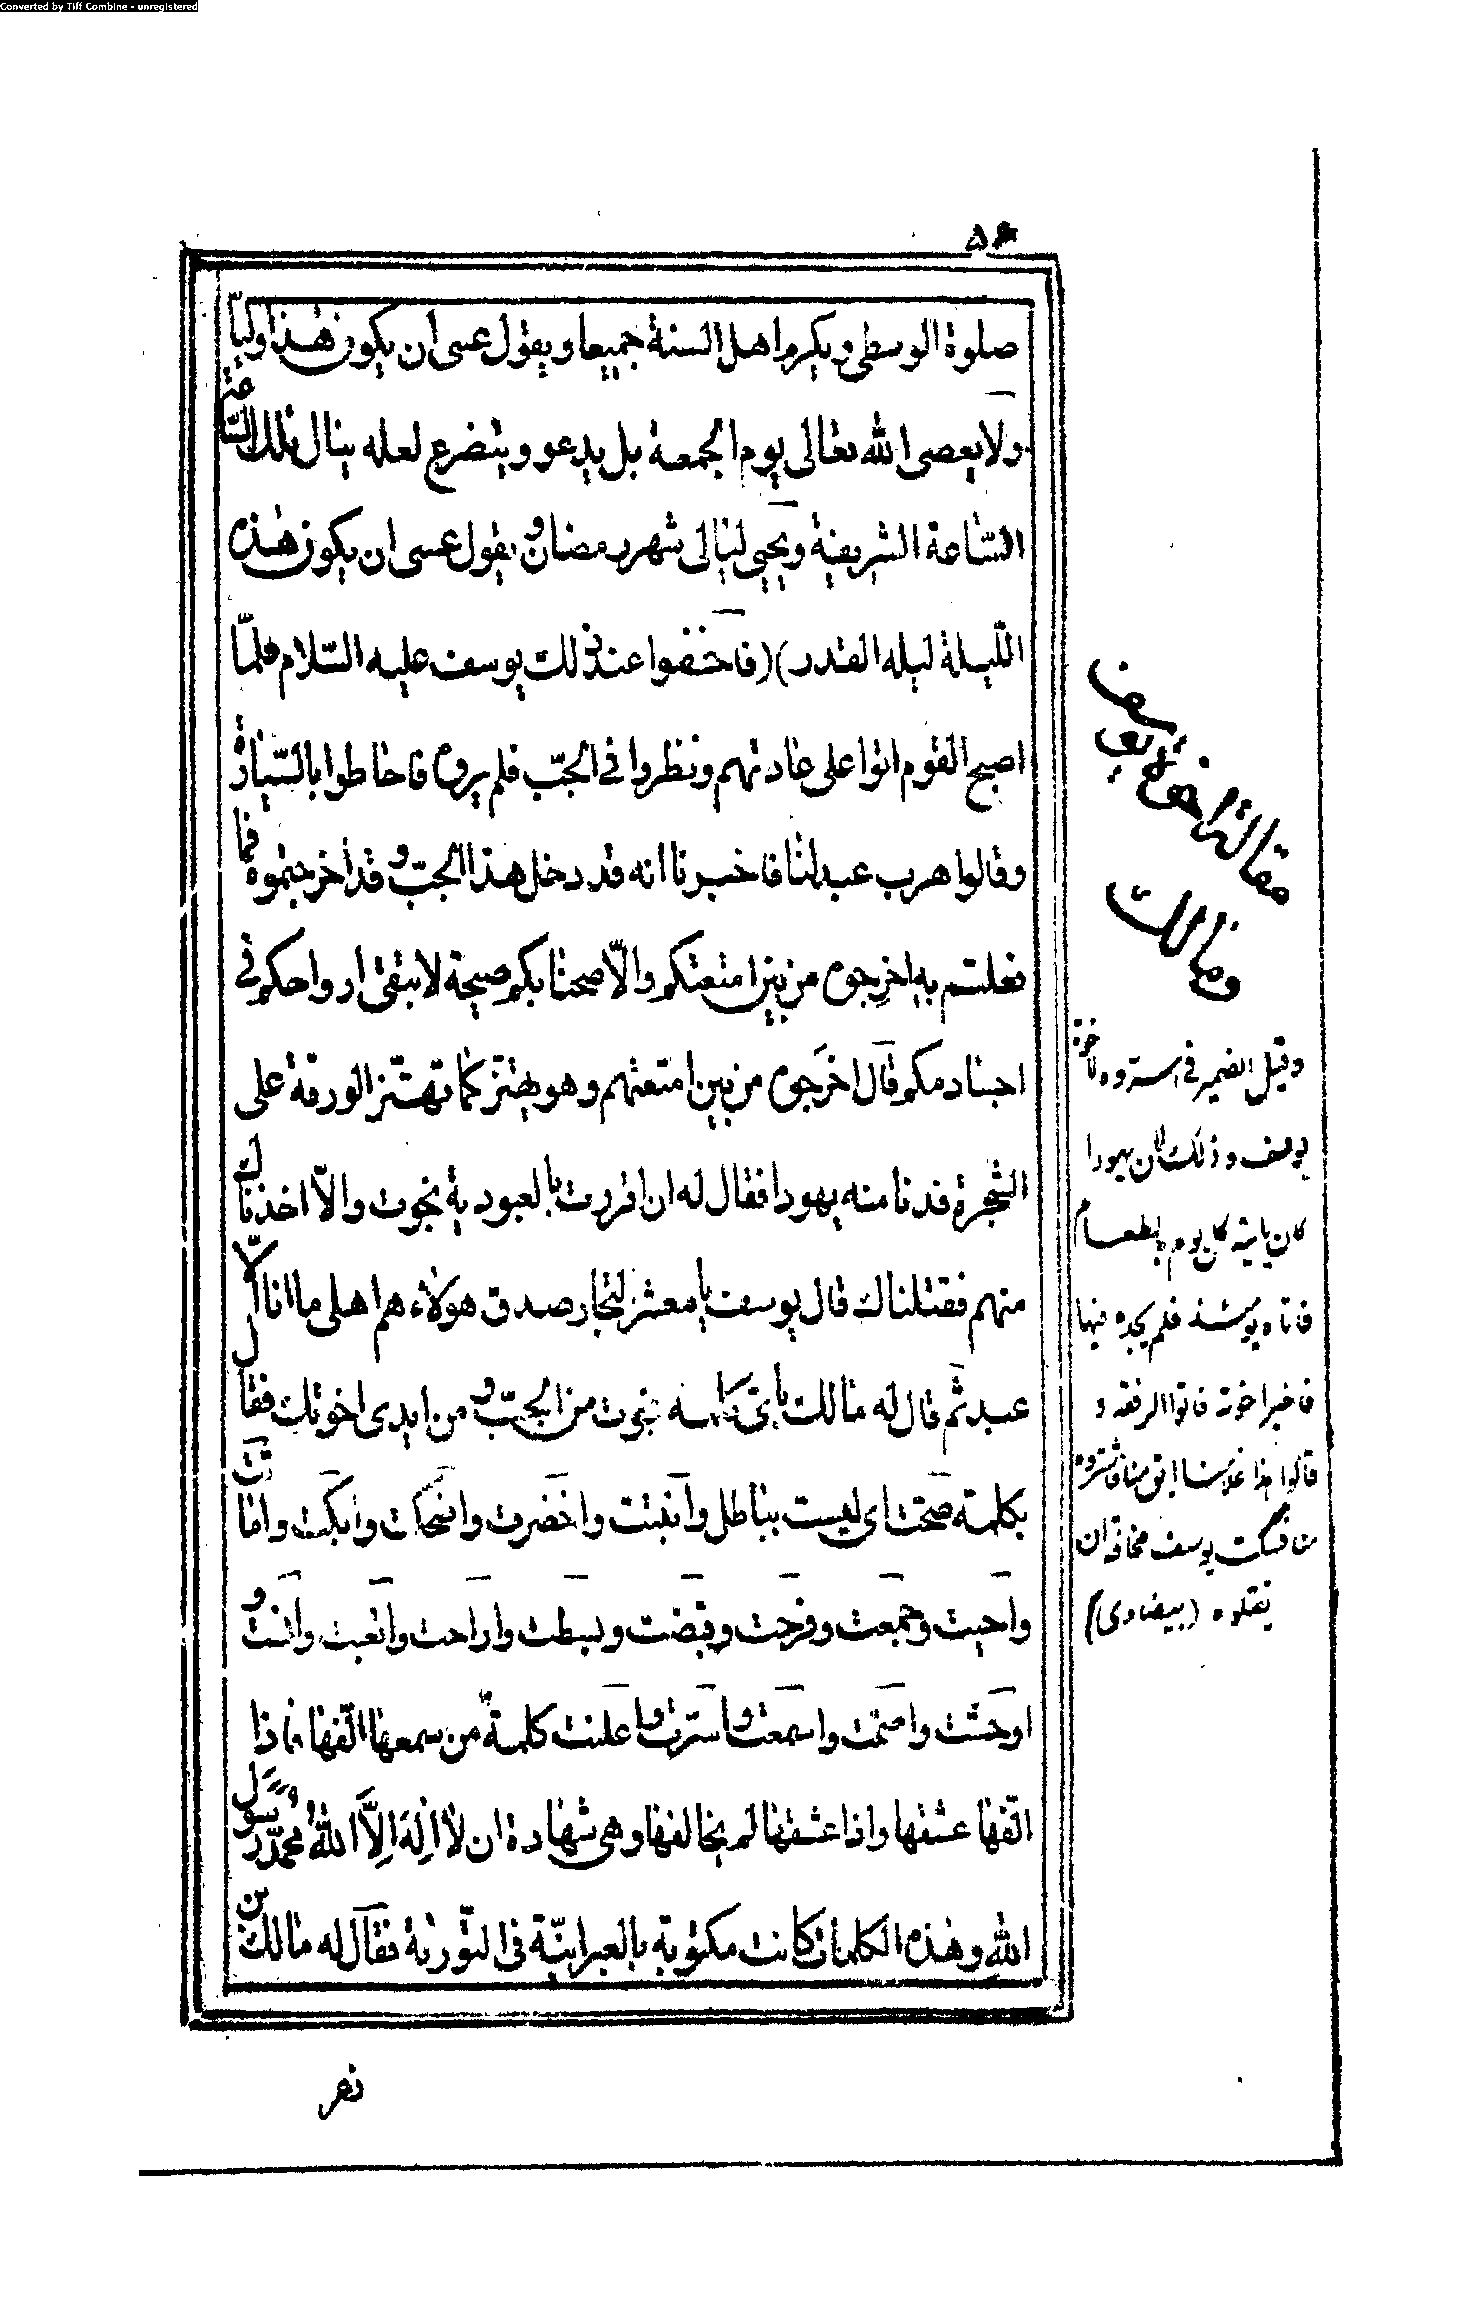 Converted by Tiff Combine - unregistered
صلوة الوسطى ويكرم اهل السنة جميعا ويقول عسى ان يكون هذا وليا
ولا يعصى الله تعالى يوم الجمعة بل يدعو ويتضرع لعله ينال تلك
السّاعة الشريفة ويحيى ليالى شهر رمضان ويقول عسى ان يكون هذه
اللّيلة ليله القدر) (فاخفوا عند ذلك يوسف عليه السّلام فلمّا
اصبح القوم اتوا على عادتهم ونظروا فى الجبّ فلم يروه فاحاطوا بالسّيارة
وقالوا هرب عبد لنا فاخبرنا انه قد دخل هذا الجبّ وقد أخرجتموه فما
فعلتم به اخرجوه من بين امتعتكم والّا صحنا بكم صيحة لا يبقى ارواحكم فى
اجسادكم قال اخرجوه من بين امتعتهم وهو يهتز كما تهتّز الورقة على
الشّجرة فدنا منه يهودا فقال له ان اقررت بالعبودية نجوت والّا اخذناك
منهم فقتلناك قال يوسف يا معشر التجار صدق هولاء هم اهلى ما انا الّا
عبد ثم قال له مالك باىّ كلمه نجوت من الجبّ ومن ايدى اخوتك فقال
بكلمة صحت اى ليست بباطل وآنبتت واخضرت واضحكت وابكت واماتت
واحيت وجمعت وفرجت وقبضت وبسطت واراحت واتعبت وآنست و
اوحشت واصمّت واسمعت واسرّت واعلنت كلمةٌ من سمعها الّفها فاذا
الّفها عشقها واذا عشقها لم يخالفها وهى شهادة ان لا اله الّا الله محمّد رسول
اللهِ وهذه الكلمات كانت مكتوبة بالعبرانيّة فى التّورية فقال له مالك بن
مقالة اخوة يوسف
ومالك
وقيل الضمير فى اسروه لاخوة
يوسف وذلك ان يهودا
كان ياتيه كل يوم بطعام
فاتاه يومئذ فلم يجده فيها
فاخبر اخوته فاتوا الرفقه و
قالوا هذا غلامنا ابق منا فاشتروه
منا فسكت يوسف مخافة ان
يقتلوه (بيضاوى)